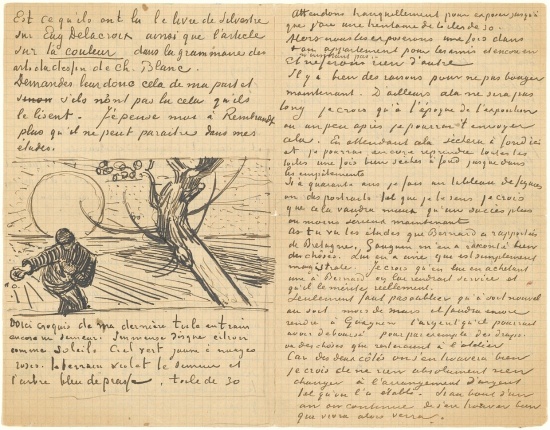 Est ce qu'ils ont lu le livre de Silvestre
sur Eug Delacroix ainsi que l'article
sur la couleur dans la grammaire des
arts du dessin de Ch. Blanc.
Demandes leur donc cela de ma part et
sinon s'ils n'ont pas lu cela qu'ils
le lisent. Je pense moi à Rembrandt
plus qu'il ne peut paraitre dans mes
études.
Voici croquis de ma dernière toile en train
encore un semeur. Immense disque citron
comme soleil. Ciel vert jaune à nuages
roses. le terrain violet le semeur et
l'arbre bleu de prusse. toile de 30
Attendons tranquillement pour exposer jusqu'à
que j'aie une trentaine de toiles de 30.
Alors nous les exposerons une fois dans
ton appartement pour les amis et encore en
et ne faisons rien d'autre
Il y a bien des raisons pour ne pas bouger
maintenant. D'ailleurs cela ne sera pas
long je crois qu'à l'époque de l'exposition
ou un peu après je pourrai t'envoyer
cela. En attendant cela sèchera à fond ici
et je pourrai encore reprendre toutes les
toiles une fois bien sèches à fond jusque dans
les empâtements
Si à quarante ans je fais un tableau de figures
ou des portraits tel que je le sens je crois
que cela vaudra mieux qu'un succès plus
ou moins sérieux maintenant
As tu vu les études que Bernard a rapportées
de Bretagne, Gauguin m'en a raconté bien
des choses. Lui en a une qui est simplement
magistrale. Je crois qu'en lui en achetant
une à Bernard on lui rendrait service et
qu'il le mérite réellement.
Seulement faut pas oublier qu'à soit nouvel
an soit mois de mars il faudra encore
rendre à Gauguin l'argent qu'il pourrait
avoir déboursé pour par exemple des draps ou
des choses qui resteraient à l'atelier
Car des deux côtés on s'en trouvera bien
je crois de ne rien absolument rien
changer à l'arrangement d'argent
tel qu'on l'a établi. Si au bout d'un
an on continue de s'en trouver bien
que vivra alors verra.